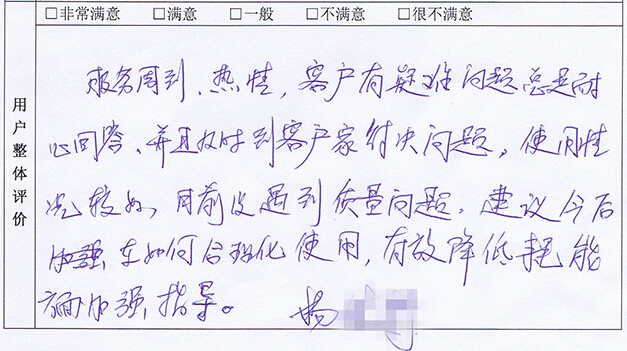 □非常满意 □满意 □一般 □不满意 □很不满意
用户整体评价
服务周到、热情，客户有疑难问题总是耐
心回答、并且及时到客户家解决问题，使用情
况较好，目前没遇到质量问题，建议今后
加强在如何合理化使用，有效降低耗能
方面加强指导。 杨